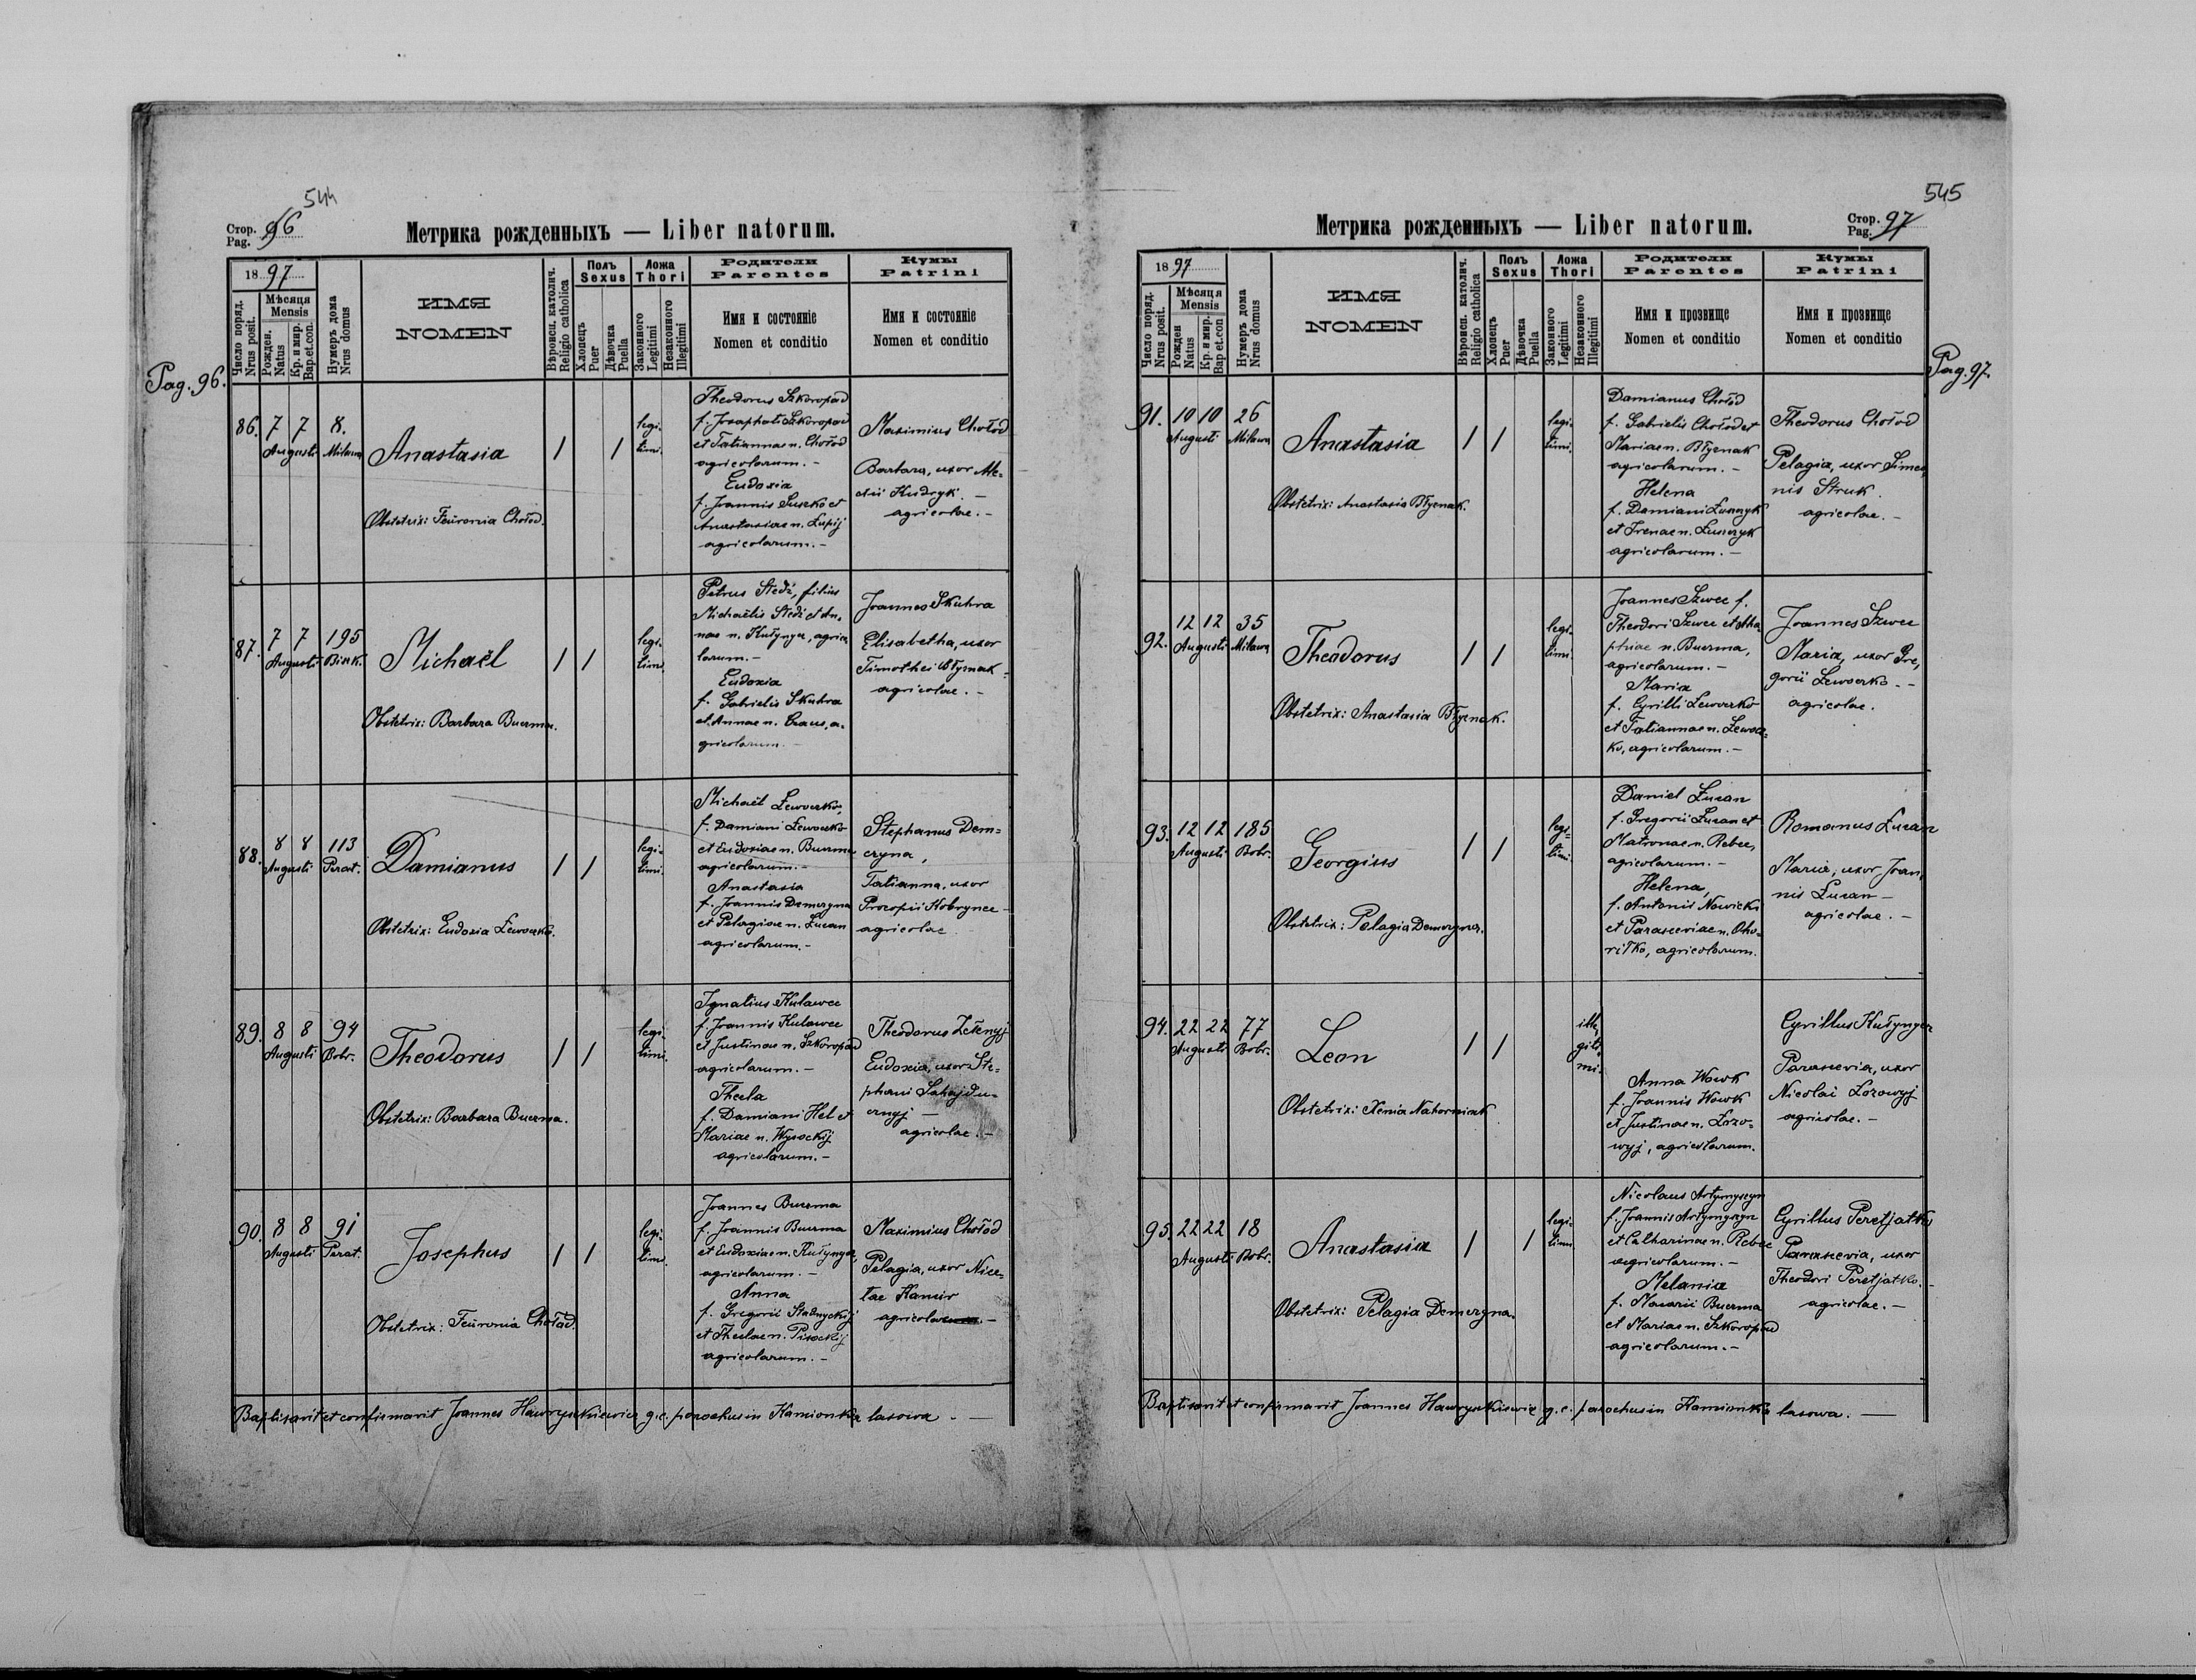 544
Стор. 96
Pag.
Метрика рожденныхъ — Liber natorum.
Pag. 96.
1897
Число поряд.
Nrus posit.
Мѣсяця
Mensis
Рожден.
Natus
Кр. и мир.
Bap.et.con.
Нумеръ дома
Nrus domus
ИМЯ
NOMEN
Вѣроисп. католич.
Religio catholica
Полъ
Sexus
Хлопецъ
Puer
Дѣвочка
Puella
Ложа
Thori
Законного
Legitimi
Незаконного
Illegitimi
Родители
Parentes
Имя и состояніе
Nomen et conditio
Кумы
Patrini
Имя и состояніе
Nomen et conditio
86. 7 7 8.
Augusti Milawa
Anastasia
Obstetrix: Feuronia Chołod.
legi-
timi.
Theodorus Szkoropad
f. Josaphati Szkoropad
et Tatiannae n. Chołod
agricolarum. -
Eudoxia
f. Joannis Suszko et
Anastasiae n. Łupij
agricolarum. -
Maximius Chołod
Barbara, uxor Ale-
xii Kudryk. -
agricolae. -
87. 7 7 195
Augusti
Michaël
Obstetrix: Barbara Buczma.
legi-
timi.
Petrus Sledź, filius
Michaëlis Sledź et An-
nae n. Kułynycz, agrico-
larum. -
Eudoxia
f. Gabrielis Skuhra
et Annae n.
a-
gricolarum. -
Joannes Skuhra
Elisabetha, uxor
Timothei
agricolae. -
88. 8 8 113
Augusti Perat.
Damianus
Obstetrix: Eudoxia Łewoczko.
legi-
timi.
Michaël Łewoczko,
f. Damiani Łewoczko
et Eudoxiae n. Buczma
agricolarum. -
Anastasia
f. Joannis Demczyna
et Pelagiae n. Łucan
agricolarum. -
Stephanus Dem-
czyna,
Tatianna, uxor
Procopii Kobrynec -
agricolae
89. 8 8 94
Augusti Bobr.
Theodorus
Obstetrix: Barbara Buczma.
legi-
timi.
Ignatius Kulawec
f. Joannis Kulawec
et Justinae n. Szkoropad
agricolarum. -
Thecla
f. Damiani Hel et
Mariae n. Wysockij
agricolarum. -
Theodorus Zełenyj
Eudoxia, uxor Ste-
phani Sahajda-
cznyj -
agricolae. -
90. 8 8 91
Augusti Perat.
Josephus
Obstetrix: Feuronia Chołod
legi-
timi.
Joannes Buczma
f. Joannis Buczma
et Eudoxiae n. Kułynycz,
agricolarum. -
Anna
f. Gregorii Stadnyckij
et Theclae n. Pisockij
agricolarum. -
Maximius Chołod
Pelagia, uxor Nice-
tae Kamir
agricolae. -
Baptisavit et confirmavit Joannes Hawryszkiewicz g.c. parochus in Kamionka lasowa. -
545
Метрика рожденныхъ — Liber natorum.
Стор. 97
Pag.
Pag. 97.
1897
Число поряд.
Nrus posit.
Мѣсяця
Mensis
Рожден
Natus
Кр. и мир.
Bap et.con.
Нумеръ дома
Nrus domus
ИМЯ
NOMEN
Вѣроисп. католич.
Religio catholica
Полъ
Sexus
Хлопецъ
Puer
Дѣвочка
Puella
Ложа
Thori
Законного
Legitimi
Незаконного
Illegitimi
Родители
Parentes
Имя и прозвище
Nomen et conditio
Кумы
Patrini
Имя и прозвище
Nomen et conditio
91. 10 10 26
Augusti Milawa
Anastasia
Obstetrix: Anastasia Błyznak.
legi-
timi.
Damianus Chołod
f. Gabrielis Chołod et
Mariae n. Błyznak
agricolarum. -
Helena
f. Damiani Łuszczyk
et Irenae n. Łuszczyk
agricolarum. -
Theodorus Chołod
Pelagia, uxor Simeo-
nis Struk.
agricolae. -
92. 12 12 35
Augusti Milawa
Theodorus
Obstetrix: Anastasia Błyznak.
legi-
timi.
Joannes Szwec f.
Theodori Szwec et Aha-
phiae n. Buczma,
agricolarum. -
Maria
f. Cyrilli Łewoczko
et Tatiannae n. Łewocz-
ko, agricolarum. -
Joannes Szwec
Maria, uxor Gre-
gorii Łewoczko. -
agricolae.
93. 12 12 185
Augusti Bobr.
Georgius
Obstetrix: Pelagia Demczyna.
legi-
timi.
Daniel Łucan
f. Gregorii Łucan et
Matronae n. Rebec,
agricolarum. -
Helena,
f. Antonii Nowicki
et Parasceviae n. Oho-
riłko, agricolarum.
Romanus Łucan
Maria, uxor Joan-
nis Łucan -
agricolae. -
94. 22 22 77
Augusti Bobr.
Leon
Obstetrix: Xenia Nahorniak
ille-
giti-
mi.
Anna Wowk
f. Joannis Wowk
et Justinae n. Łozo-
wyj, agricolarum.
Cyrillus Kułynycz
Parascevia, uxor
Nicolai Łozowyj
agricolae. -
95. 22 22 18
Augusti Bobr.
Anastasia
Obstetrix: Pelagia Demczyna.
legi-
timi.
Nicolaus Artymyszyn
f. Joannis Artymyszyn
et Catharinae n. Rebec
agricolarum. -
Melania
f. Macarii Buczma
et Mariae n. Szkoropad
agricolarum. -
Cyrillus Peretjatko
Parascevia, uxor
Theodori Peretjatko. -
agricolae. -
Baptisavit et confirmavit Joannes Hawryszkiewicz g.c. parochus in Kamionka lasowa. -